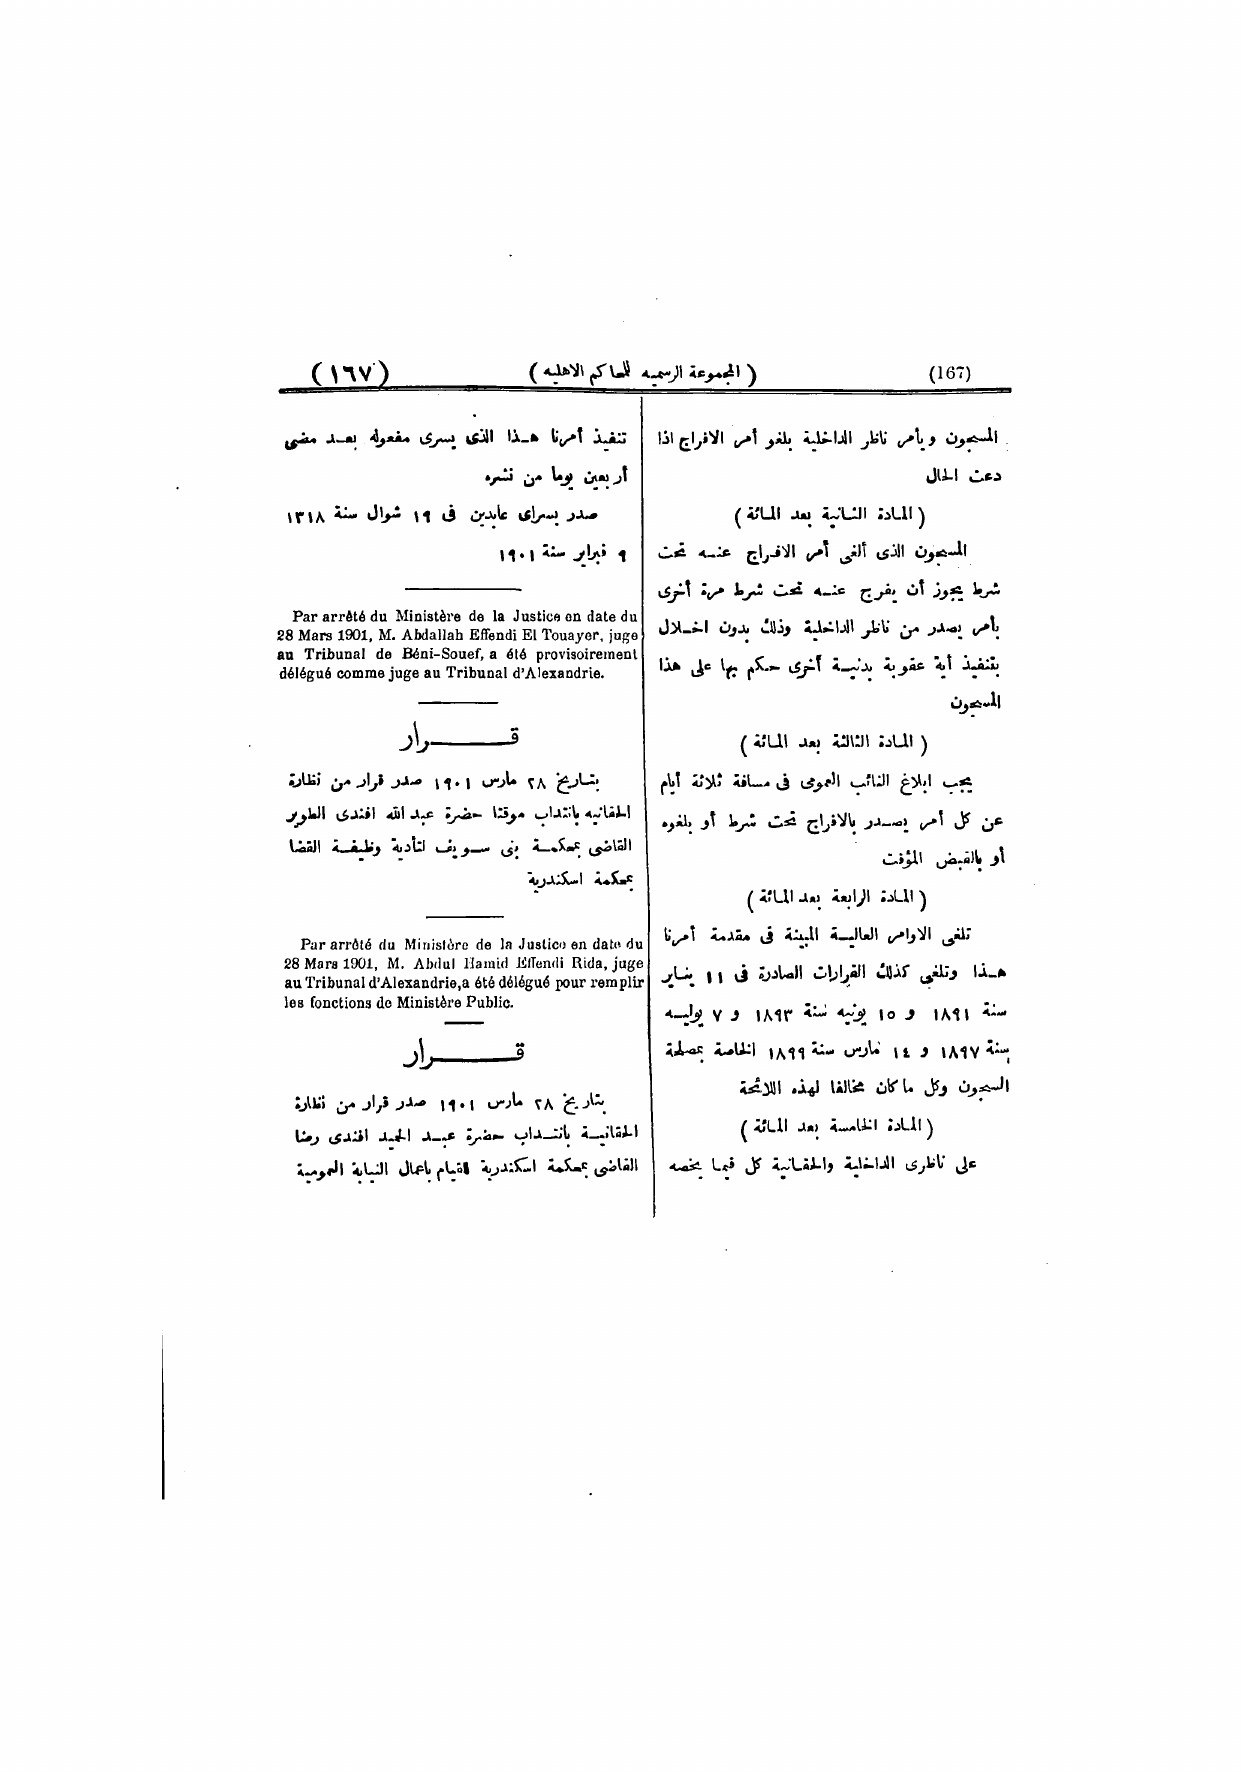 (167) ( المجموعة الرسميه للمحاكم الاهليه ) (١٦٧)
المسجون ويأمر ناظر الداخلية بلغو أمر الافراج اذا
دعت الحال
( المادة الثانية بعد المائة )
المسجون الذى ألغى أمر الافراج عنه تحت
شرط يجوز أن يفرج عنه تحت شرط مرة أخرى
بأمر يصدر من ناظر الداخلية وذلك بدون اخلال
بتنفيذ أية عقوبة بدنية أخرى حكم بها على هذا
المسجون
( المادة الثالثة بعد المائة )
يجب ابلاغ النائب العمومى فى مسافة ثلاثة أيام
عن كل أمر يصدر بالافراج تحت شرط أو بلغوه
أو بالقبض المؤقت
( المادة الرابعة بعد المائة )
تلغى الاوامر العالية المبينة فى مقدمة أمرنا
هذا وتلغى كذلك القرارات الصادرة فى ١١ يناير
سنة ١٨٩١ و ١٥ يونيه سنة ١٨٩٣ و ٧ يوليه
سنة ١٨٩٧ و ١٤ مارس سنة ١٨٩٩ الخاصة بمصلحة
السجون وكل ما كان مخالفا لهذه اللائحة
( المادة الخامسة بعد المائة )
على ناظرى الداخلية والحقانية كل فيما يخصه
تنفيذ أمرنا هذا الذى يسرى مفعوله بعد مضى
أربعين يوما من نشره
صدر بسراى عابدين فى ١٩ شوال سنة ١٣١٨
٩ فبراير سنة ١٩٠١
Par arrêté du Ministère de la Justice en date du
28 Mars 1901, M. Abdallah Effendi El Touayer, juge
au Tribunal de Béni-Souef, a été provisoirement
délégué comme juge au Tribunal d'Alexandrie.
قرار
بتاريخ ٢٨ مارس ١٩٠١ صدر قرار من نظارة
الحقانيه بانتداب موقتا حضرة عبد الله افندى الطوير
القاضى بمحكمة بنى سويف لتأدية وظيفة القضا
بمحكمة اسكندرية
Par arrêté du Ministère de la Justice en date du
28 Mars 1901, M. Abdul Hamid Effendi Rida, juge
au Tribunal d'Alexandrie, a été délégué pour remplir
les fonctions de Ministère Public.
قرار
بتاريخ ٢٨ مارس ١٩٠١ صدر قرار من نظارة
الحقانية بانتداب حضرة عبد الحميد افندى رضا
القاضى بمحكمة اسكندرية للقيام باعمال النيابة العمومية